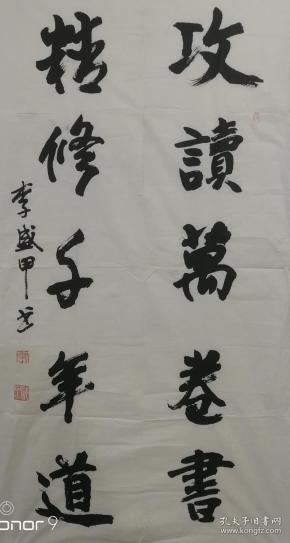 攻讀萬卷書
精修千年道
李盛甲书
onor 9
孔夫子旧书网